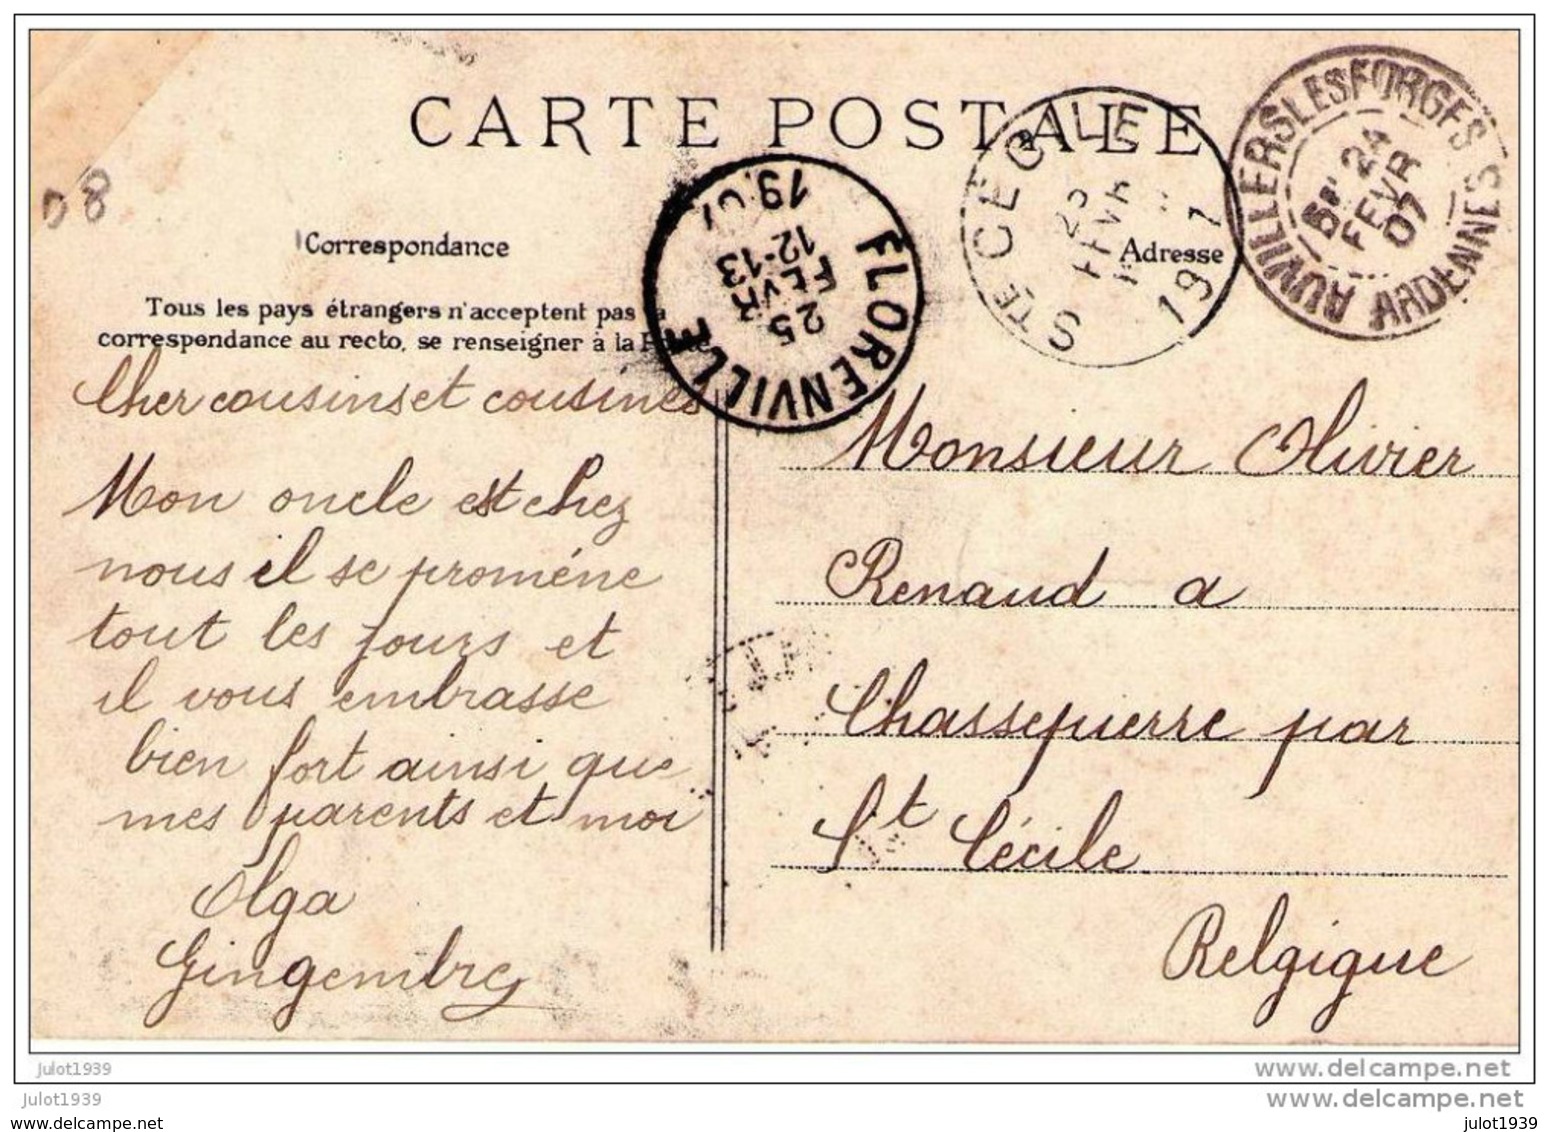 CARTE POSTALE
AUVILLERSLESFORGES ARDENNES
24
FEVR
07
STE CECILE
FLORENVILLE
25
FEVR
12-13
08
Correspondance
Adresse
Tous les pays étrangers n'acceptent pas la
correspondance au recto, se renseigner à la Poste
Cher cousins et cousines
Mon oncle est chez
nous il se proméne
tout les jours et
il vous embrasse
bien fort ainsi que
mes parents et moi
Olga
Gingembre
Monsieur Olivier
Renaud a
Chassepierre par
St Cécile
Belgique
julot1939
www.delcampe.net
julot1939
www.delcampe.net
www.delcampe.net
julot1939